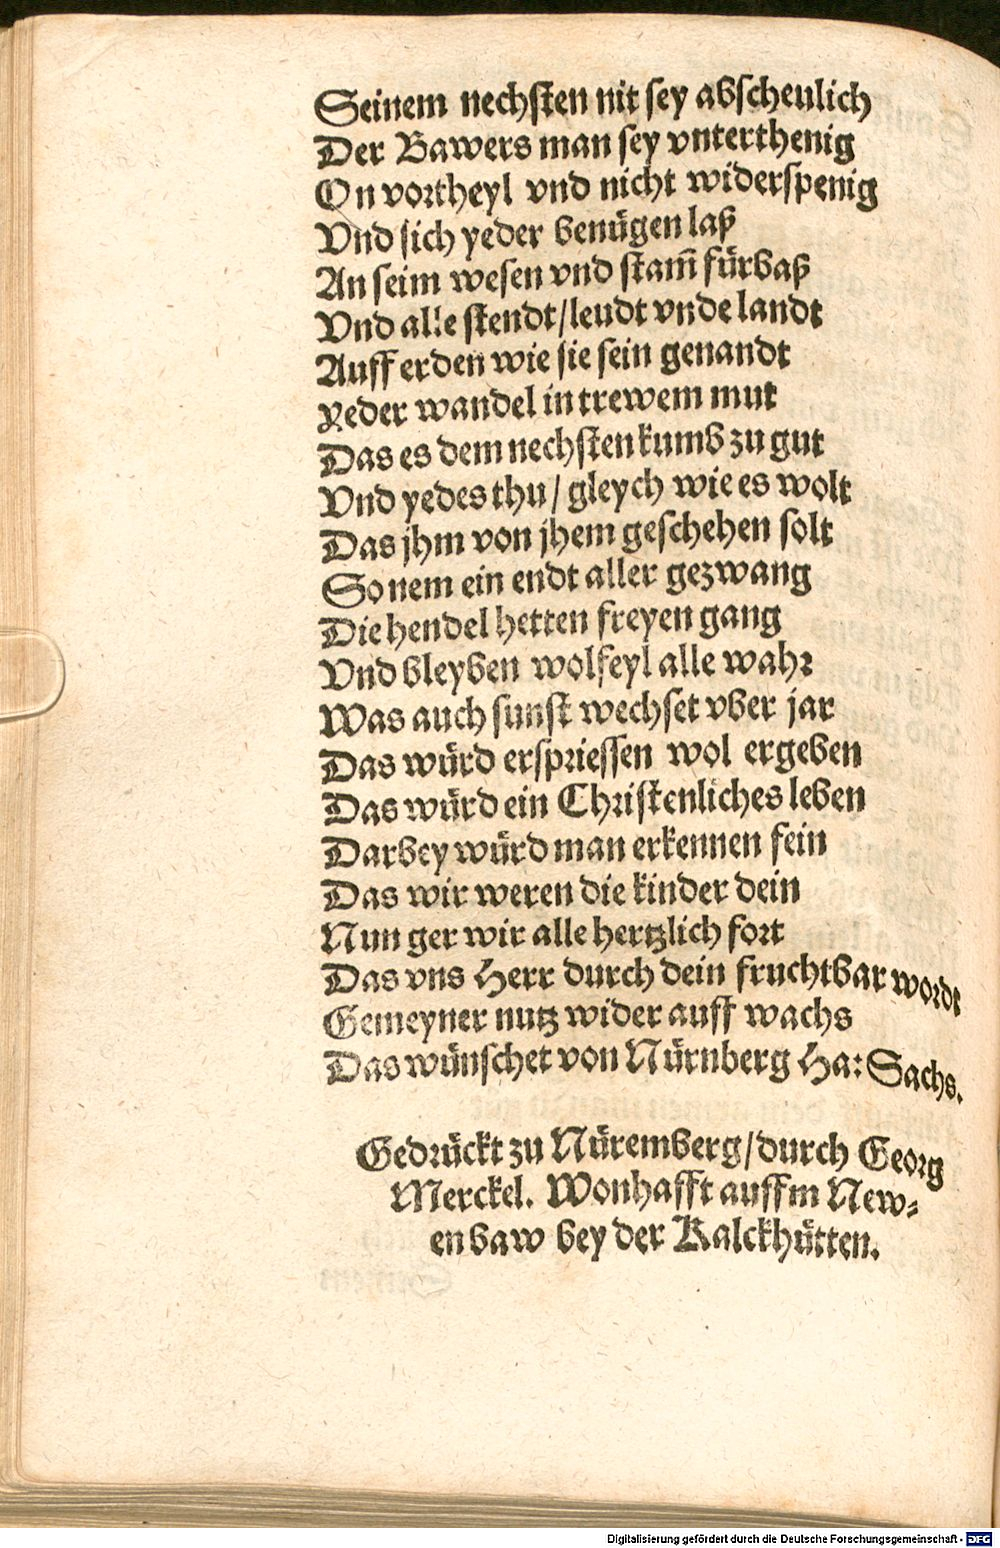 Seinem nechsten nit sey abscheulich
Der Bawers man sey vnterthenig
On vortheyl vnd nicht widerspenig
Vnd sich yeder benügen laß
An seim wesen vnd stam̃ fürbaß
Vnd alle stendt/leudt vnde landt
Auff erden wie sie sein genandt
Yeder wandel in trewem mut
Das es dem nechsten kumb zu gut
Vnd yedes thu/ gleych wie es wolt
Das jhm von jhem geschehen solt
So nem ein endt aller gezwang
Die hendel hetten freyen gang
Vnd bleyben wolfeyl alle wahr
Was auch sunst wechset vber jar
Das würd erspriessen wol ergeben
Das würd ein Christenliches leben
Darbey würd man erkennen fein
Das wir weren die kinder dein
Nun ger wir alle hertzlich fort
Das vns Herr durch dein fruchtbar wordt
Gemeyner nutz wider auff wachs
Das wünschet von Nürnberg Ha: Sachs.
Gedrückt zu Nüremberg/durch Georg
Merckel. Wonhafft auffm New⸗
en baw bey der Kalckhütten.
Digitalisierung gefördert durch die Deutsche Forschungsgemeinschaft - DFG